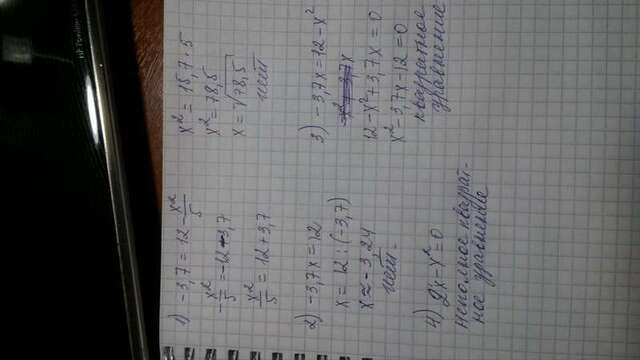 1) -3,7 = 12 - x²/5
-x²/5 = -12 - 3,7
x²/5 = 12 + 3,7
x² = 15,7 · 5
x² = 78,5
x = √78,5
нет
2) -3,7x = 12
x = 12 : (-3,7)
x ≈ -3,24
нет.
3) -3,7x = 12 - x²
12 - x² + 3,7x = 0
x² - 3,7x - 12 = 0
квадратное
уравнение
4) 2x - x² = 0
неполное квадрат-
ное уравнение